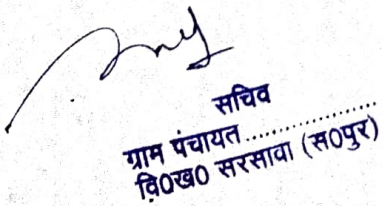 सचिव
ग्राम पंचायत....................
वि0ख0 सरसावा (स0पुर)